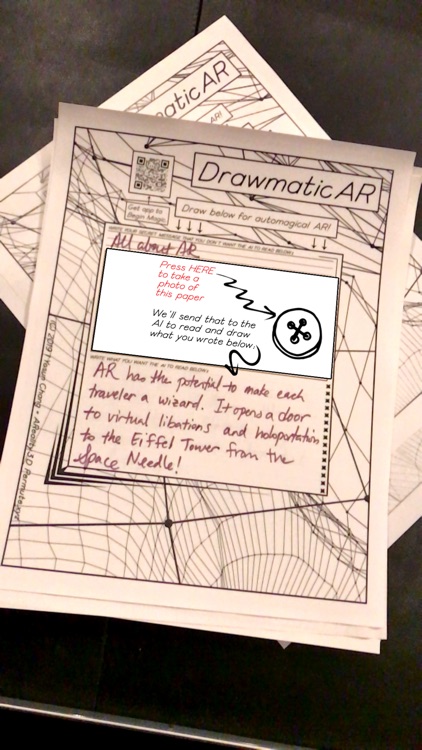 maticAR
AR!
DrawmaticAR
Get app to
Begin Magic
Draw below for automagical AR!
WRITE YOUR SECRET MESSAGE YOU DON'T WANT THE AI TO READ BELOW:
All about AR
Press HERE
to take a
photo of
this paper
We'll send that to the
AI to read and draw
what you wrote below:
WRITE WHAT YOU WANT THE AI TO READ BELOW:
AR has the potential to make each
traveler a wizard. It opens a door
to virtual libations and holoportation
to the Eiffel Tower from the
Space Needle!